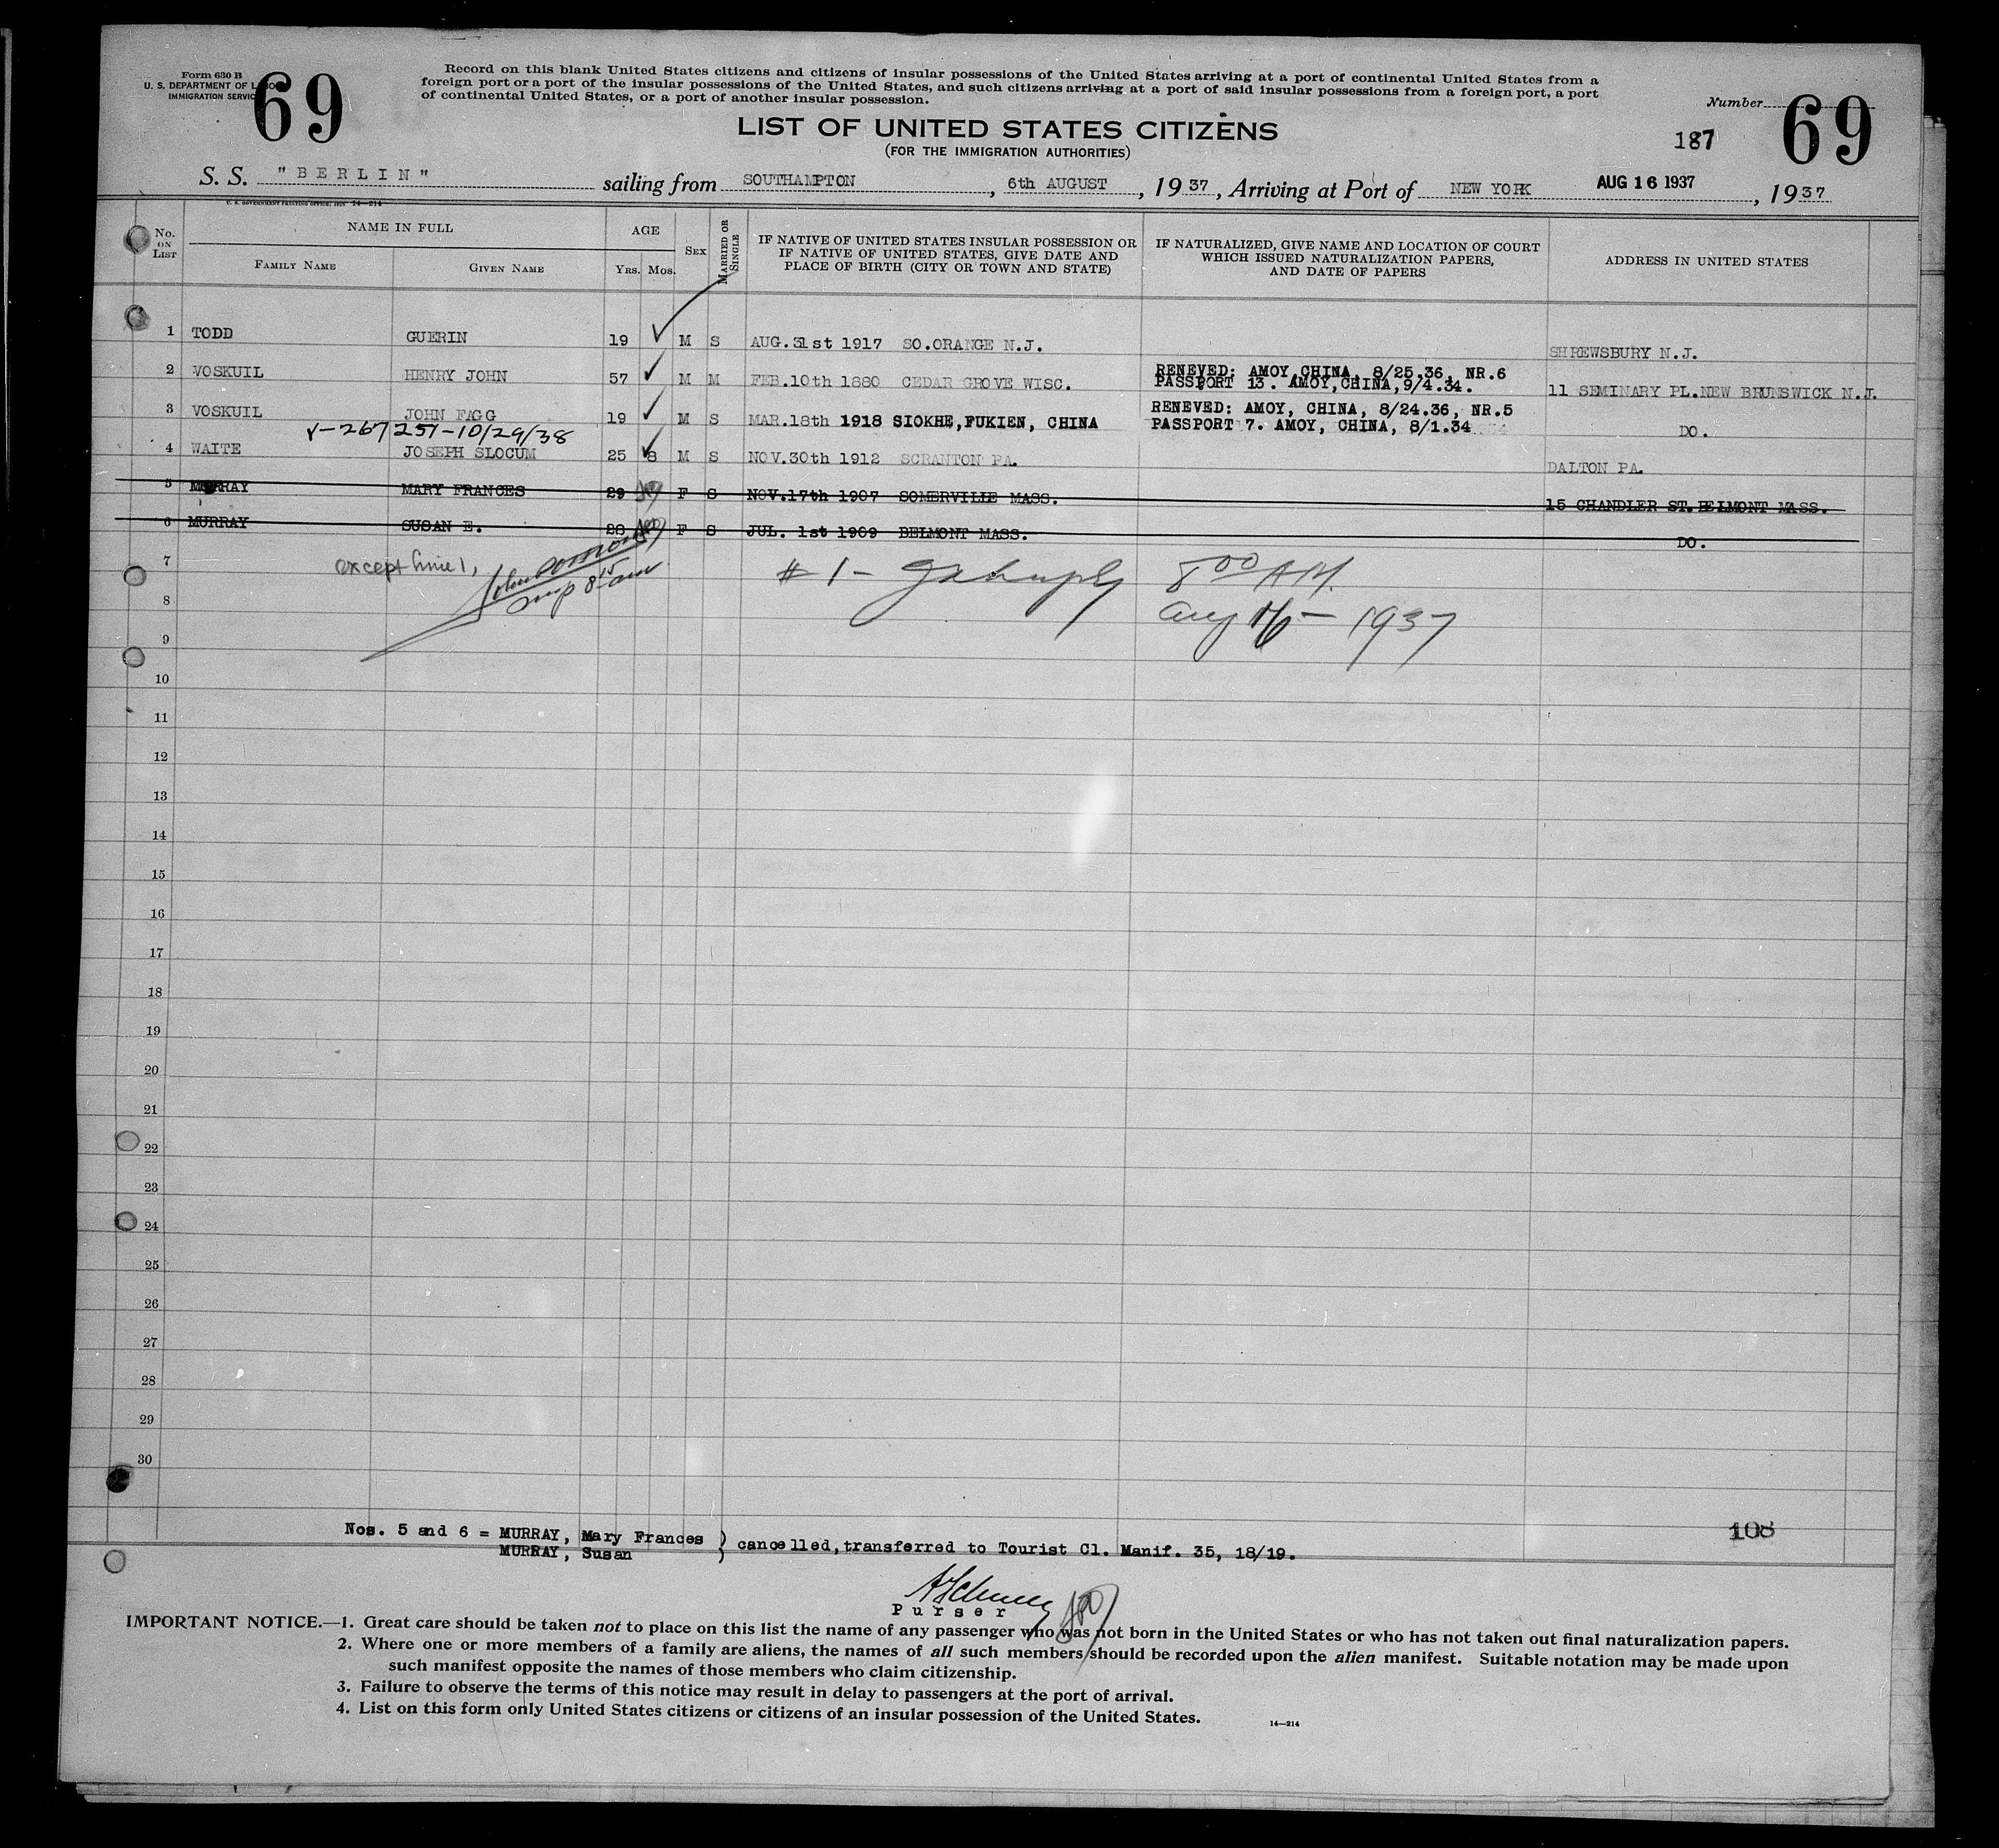 Form 630 B
U. S. DEPARTMENT OF
IMMIGRATION SERVIC
69
Record on this blank United States citizens and citizens of insular possessions of the United States arriving at a port of continental United States from a
foreign port or a port of the insular possessions of the United States, and such citizens arriving at a port of said insular possessions from a foreign port, a port
of continental United States, or a port of another insular possession.
LIST OF UNITED STATES CITIZENS
(FOR THE IMMIGRATION AUTHORITIES)
Number
187
69
S. S. "BERLIN" sailing from SOUTHAMPTON, 6th AUGUST, 1937, Arriving at Port of NEW YORK AUG 16 1937, 1937
No. ON LIST
NAME IN FULL
FAMILY NAME
GIVEN NAME
AGE
YRS. MOS.
SEX
MARRIED OR SINGLE
IF NATIVE OF UNITED STATES INSULAR POSSESSION OR
IF NATIVE OF UNITED STATES, GIVE DATE AND
PLACE OF BIRTH (CITY OR TOWN AND STATE)
IF NATURALIZED, GIVE NAME AND LOCATION OF COURT
WHICH ISSUED NATURALIZATION PAPERS,
AND DATE OF PAPERS
ADDRESS IN UNITED STATES
1 TODD GUERIN 19 M S AUG.31st 1917 SO.ORANGE N.J. SHREWSBURY N.J.
2 VOSKUIL HENRY JOHN 57 M M FEB.10th 1880 CEDAR GROVE WISC. RENEVED: AMOY CHINA, 8/25.36, NR.6
PASSPORT 13. AMOY,CHINA,9/4.34. 11 SEMINARY PL.NEW BRUNSWICK N.J.
3 VOSKUIL JOHN FAGG 19 M S MAR.18th 1918 SIOKHE,FUKIEN, CHINA RENEVED: AMOY, CHINA, 8/24.36, NR.5
PASSPORT 7. AMOY, CHINA, 8/1.34 DO.
V-267251-10/29/38
4 WAITE JOSEPH SLOCUM 25 8 M S NOV.30th 1912 SCRANTON PA. DALTON PA.
5 MURRAY MARY FRANCES 29 F S NOV.17th 1907 SOMERVILLE MASS. 15 CHANDLER ST. BELMONT MASS.
6 MURRAY SUSAN E. 28 F S JUL. 1st 1909 BELMONT MASS. DO.
7
except line 1,
# 1 -
8 00 AM.
8
Aug 16 - 1937
9
10
11
12
13
14
15
16
17
18
19
20
21
22
23
24
25
26
27
28
29
30
Nos. 5 and 6 = MURRAY, Mary Frances
MURRAY, Susan
) cancelled,transferred to Tourist Cl. Manif. 35, 18/19.
108
Purser
IMPORTANT NOTICE.—1. Great care should be taken not to place on this list the name of any passenger who was not born in the United States or who has not taken out final naturalization papers.
2. Where one or more members of a family are aliens, the names of all such members should be recorded upon the alien manifest. Suitable notation may be made upon
such manifest opposite the names of those members who claim citizenship.
3. Failure to observe the terms of this notice may result in delay to passengers at the port of arrival.
4. List on this form only United States citizens or citizens of an insular possession of the United States.
14—214